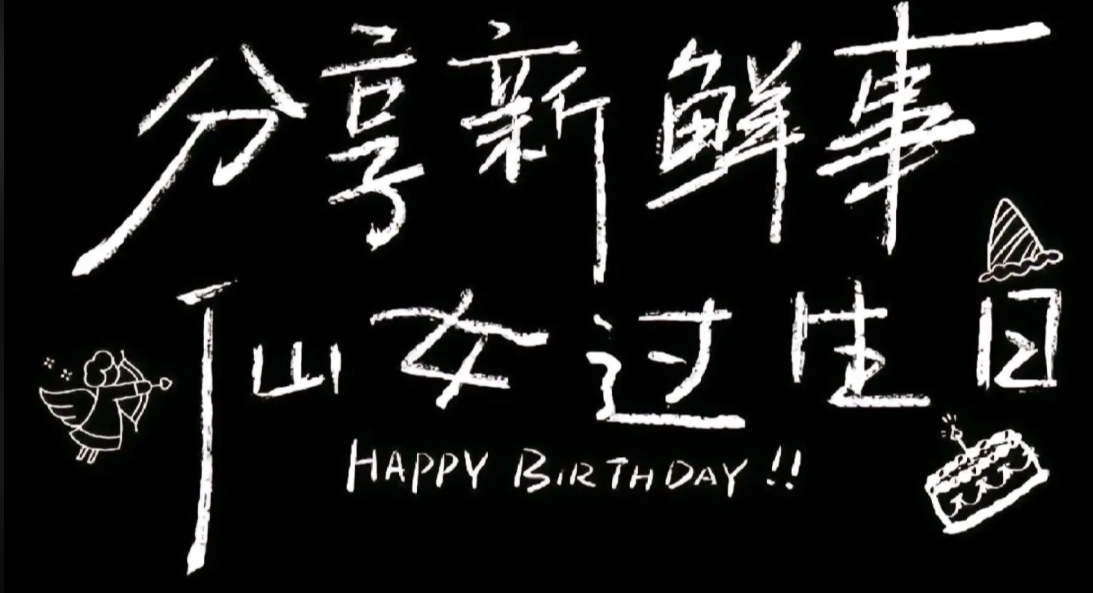 分享新鲜事
仙女过生日
HAPPY BIRTHDAY !!